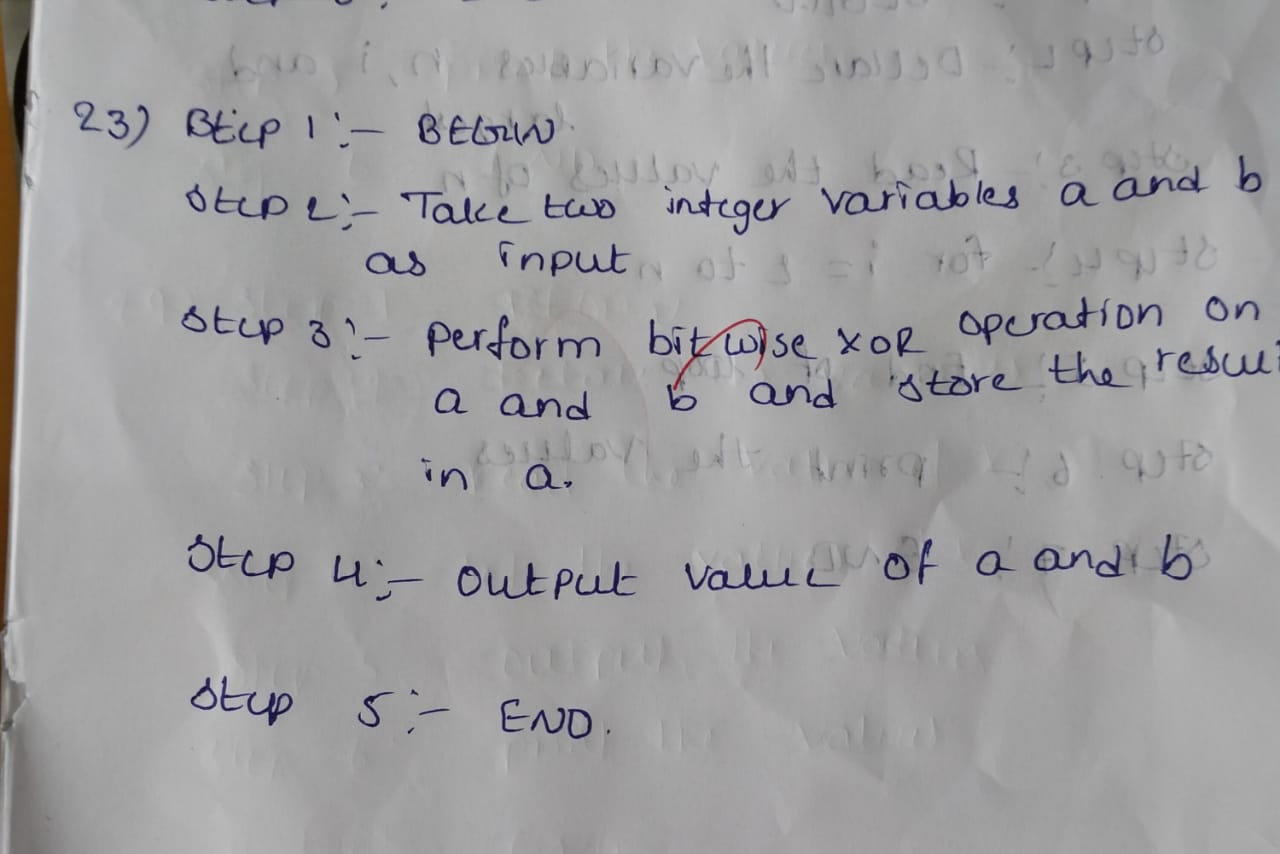 23) Step 1 :- BEGIN
Step 2 :- Take two integer variables a and b
as input
Step 3 :- perform bitwise XOR operation on
a and b and store the resul
in a.
Step 4 :- output value of a and b
Step 5 :- END.